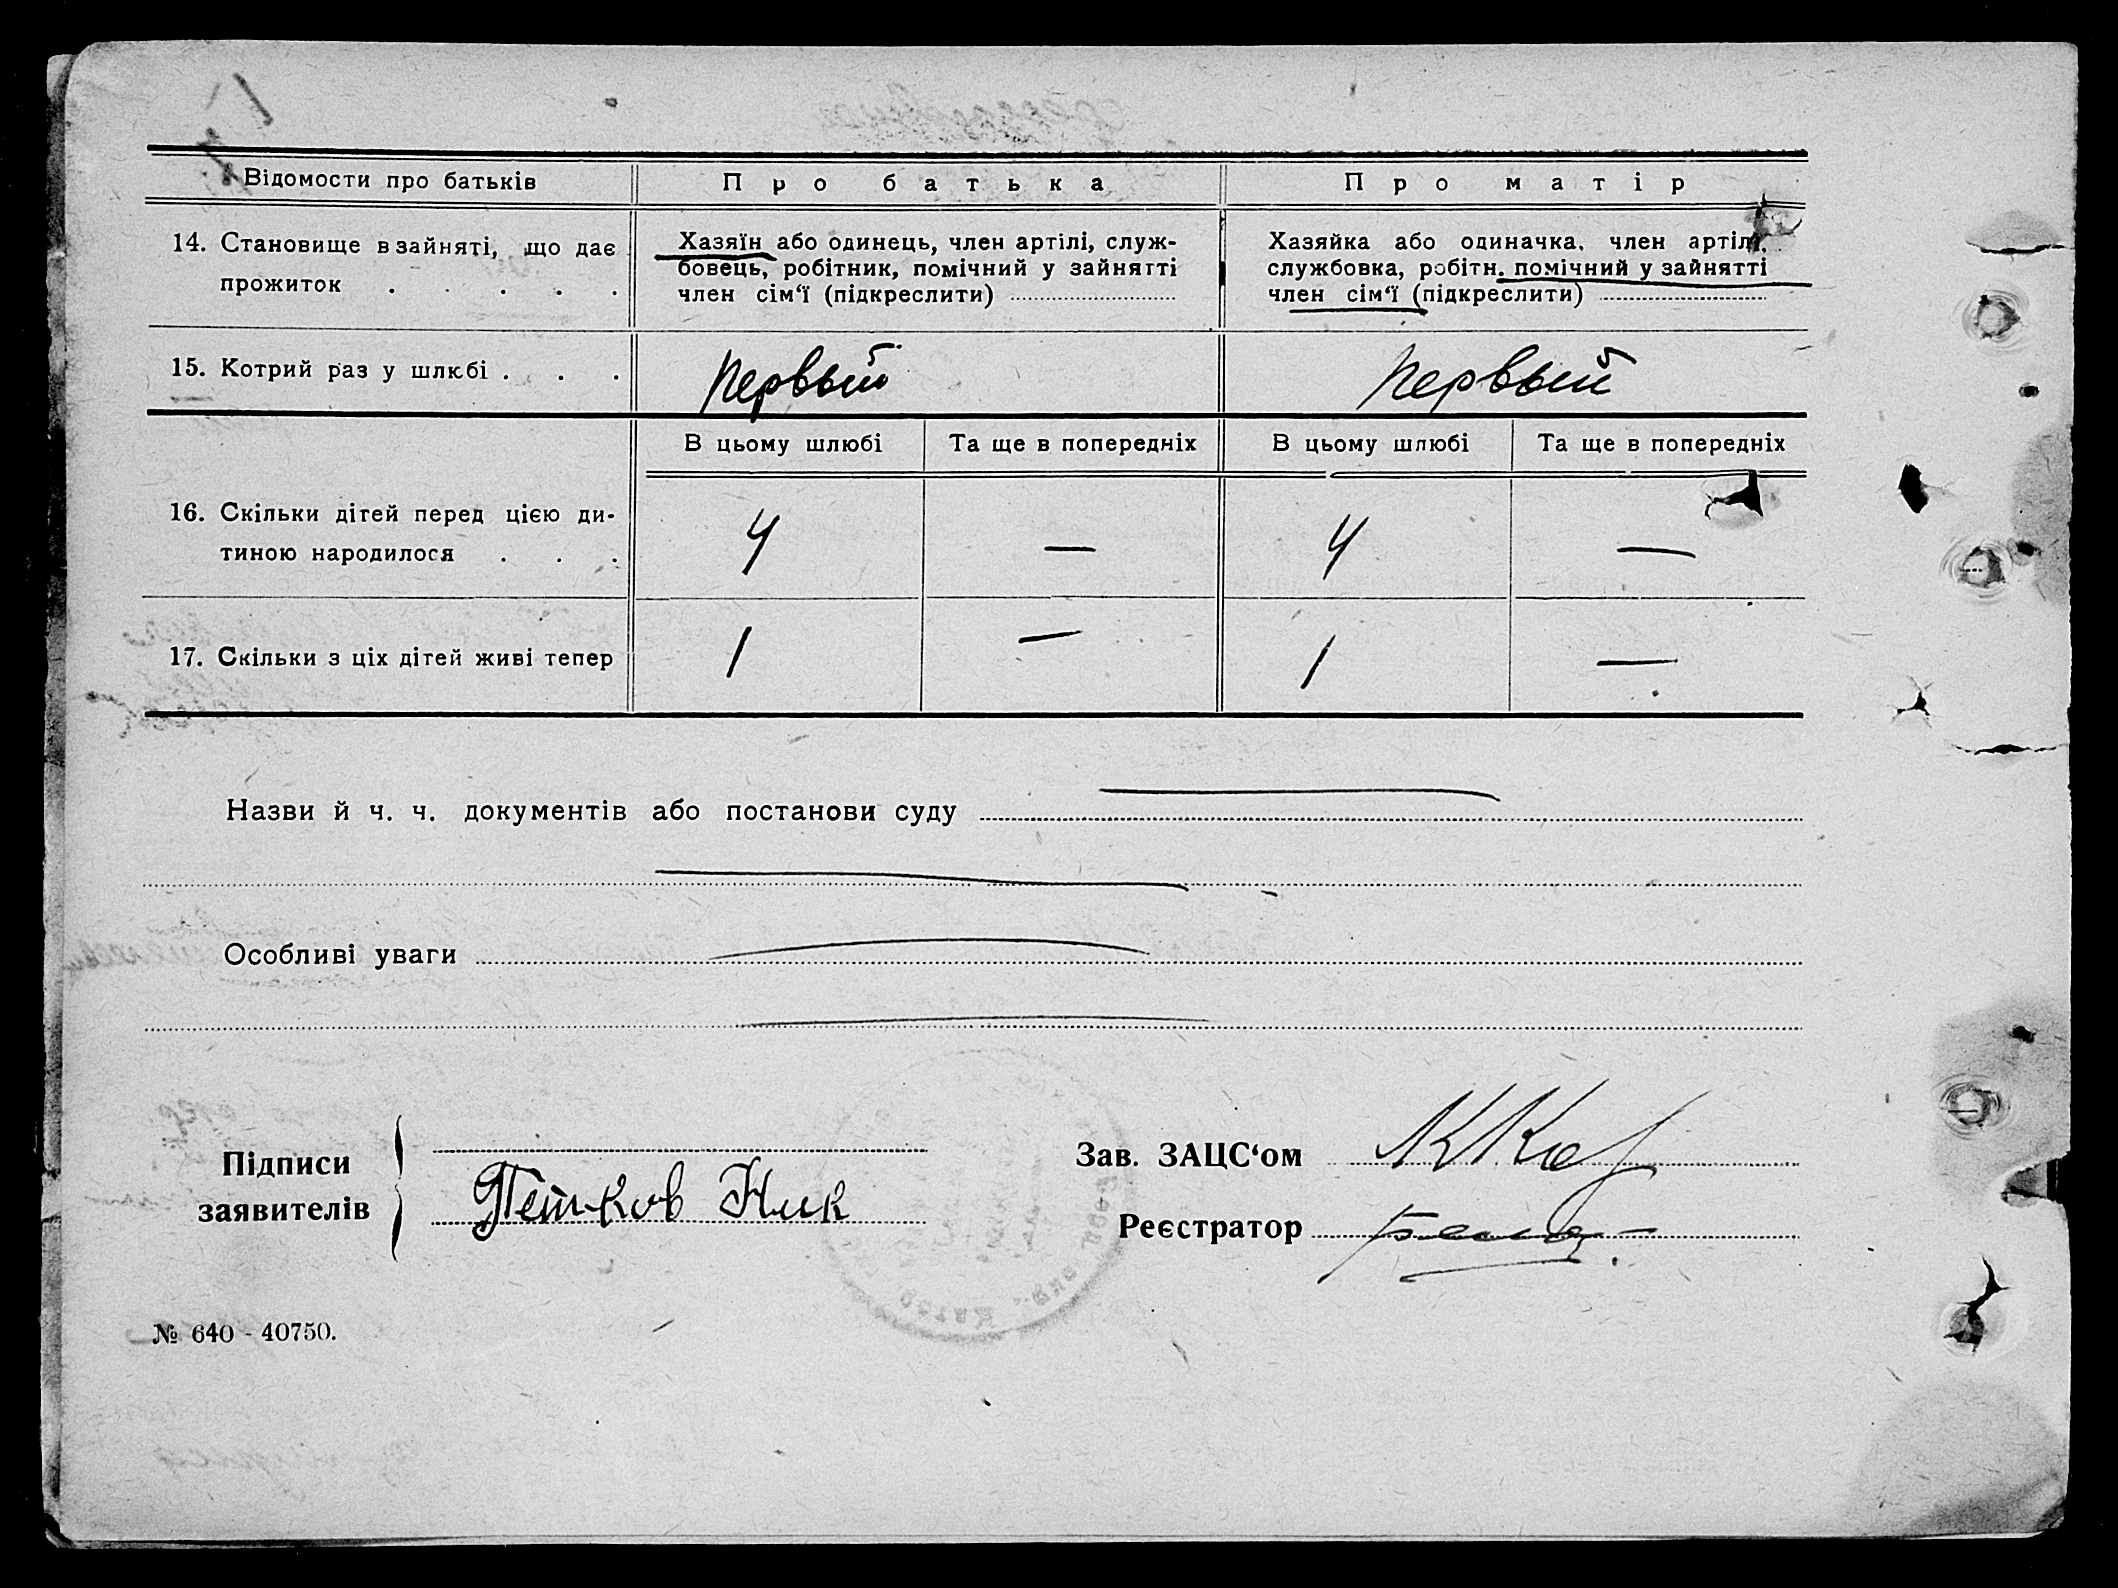 Відомости про батьків
Про батька
Про матір
14. Становище в зайняті, що дає
прожиток . . . . .
Хазяїн або одинець, член артілі, служ-
бовець, робітник, помічний у зайнятті
член сім‘ї (підкреслити)
Хазяйка або одиначка, член артілі,
службовка, робітн. помічний у зайнятті
член сім‘ї (підкреслити)
15. Котрий раз у шлюбі . . .
первый
первый
В цьому шлюбі
Та ще в попередніх
В цьому шлюбі
Та ще в попередніх
16. Скільки дітей перед цією ди-
тиною народилося . . .
4
—
4
—
17. Скільки з ціх дітей живі тепер
1
—
1
—
Назви й ч. ч. документів або постанови суду
Особливі уваги
Підписи
заявителів
Петков Ник
Зав. ЗАЦС‘ом
Реєстратор
№ 640 - 40750.